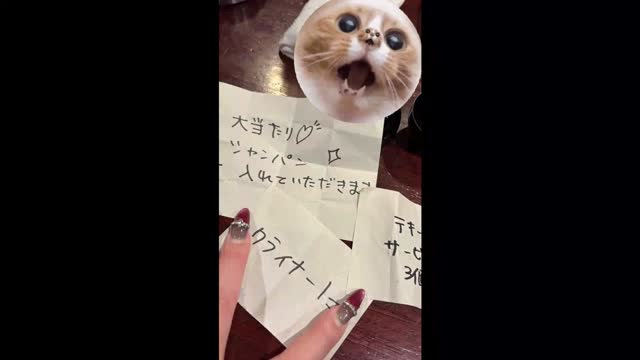 大当たり♡
シャンパン
入れていただきます
クライナー1
テキー
サービ
3個